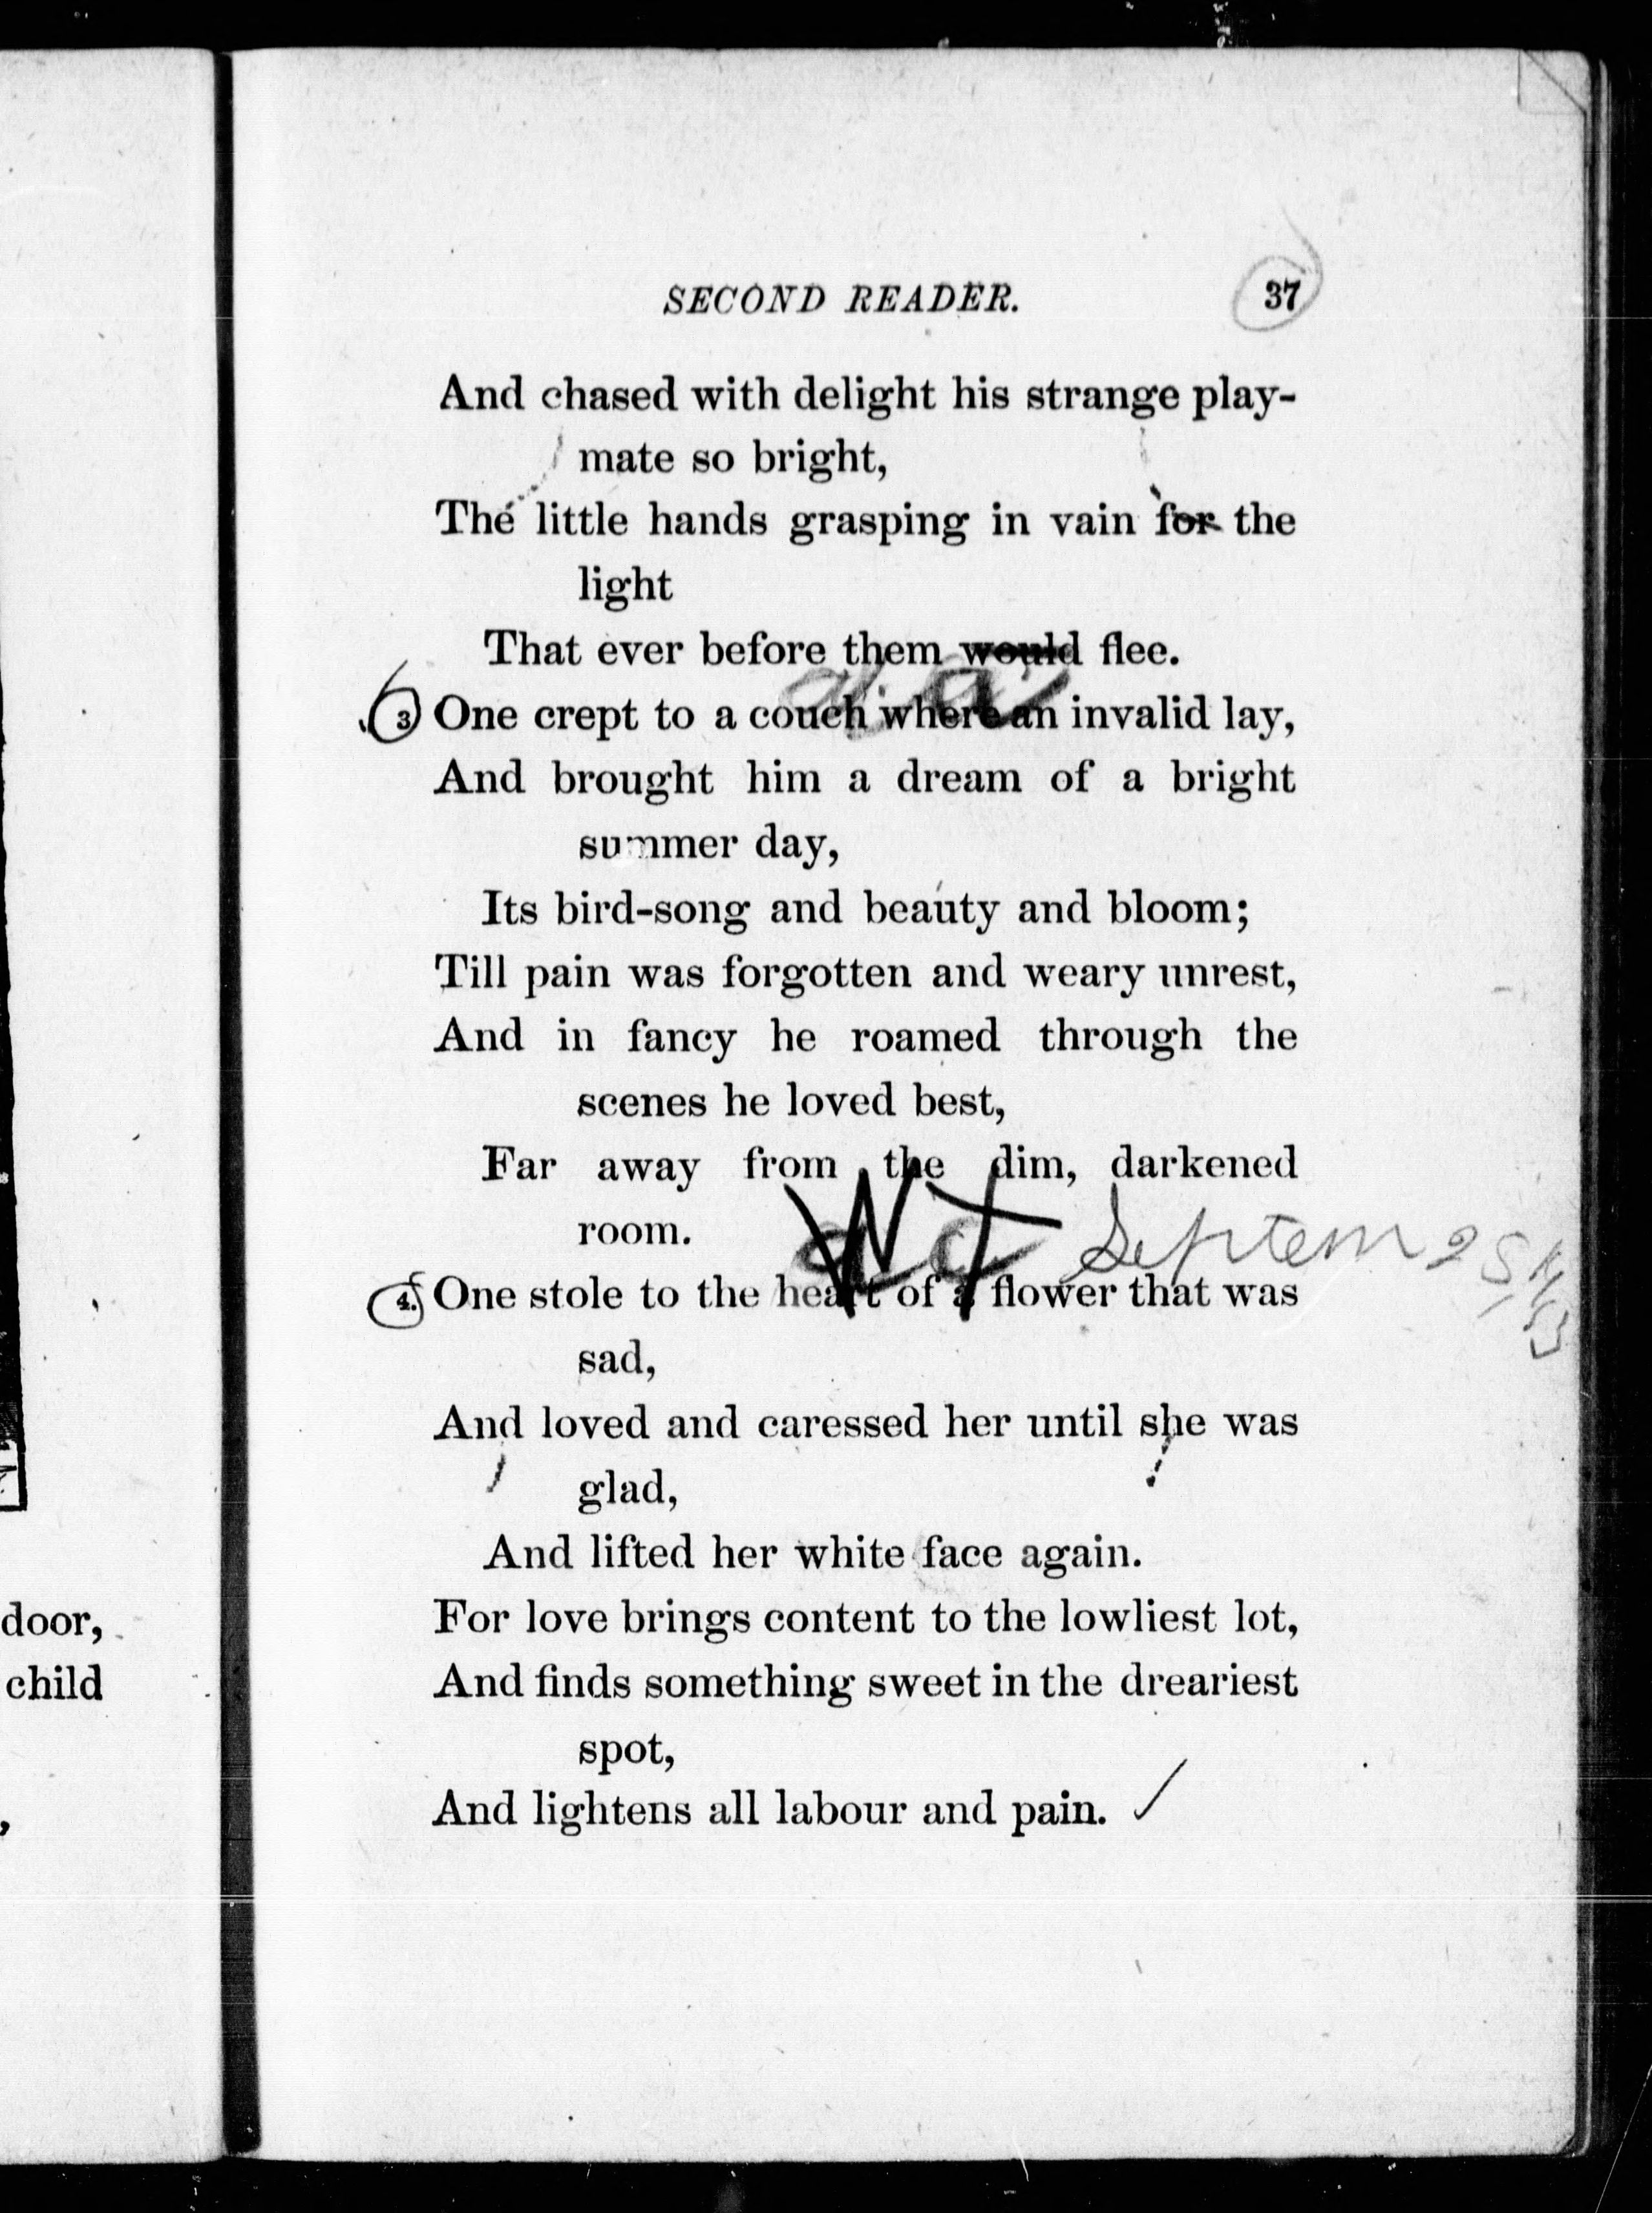 SECOND READER. 37
And chased with delight his strange play-
mate so bright,
The little hands grasping in vain for the
light
That ever before them would flee.
3 One crept to a couch where an invalid lay,
And brought him a dream of a bright
summer day,
Its bird-song and beauty and bloom;
Till pain was forgotten and weary unrest,
And in fancy he roamed through the
scenes he loved best,
Far away from the dim, darkened
room.
Septem 25
4. One stole to the heart of a flower that was
sad,
And loved and caressed her until she was
glad,
And lifted her white face again.
For love brings content to the lowliest lot,
And finds something sweet in the dreariest
spot,
And lightens all labour and pain.
door,
child